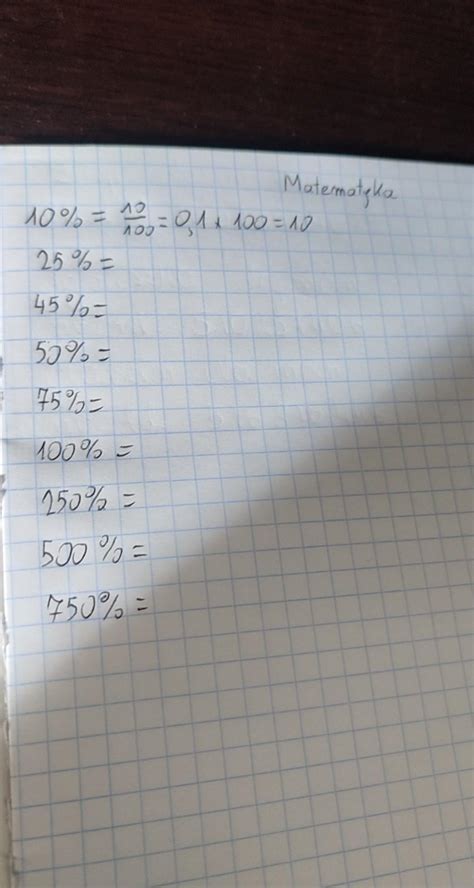 Matematyka
10% = 10/100 = 0,1 * 100 = 10
25% =
45% =
50% =
75% =
100% =
250% =
500% =
750% =